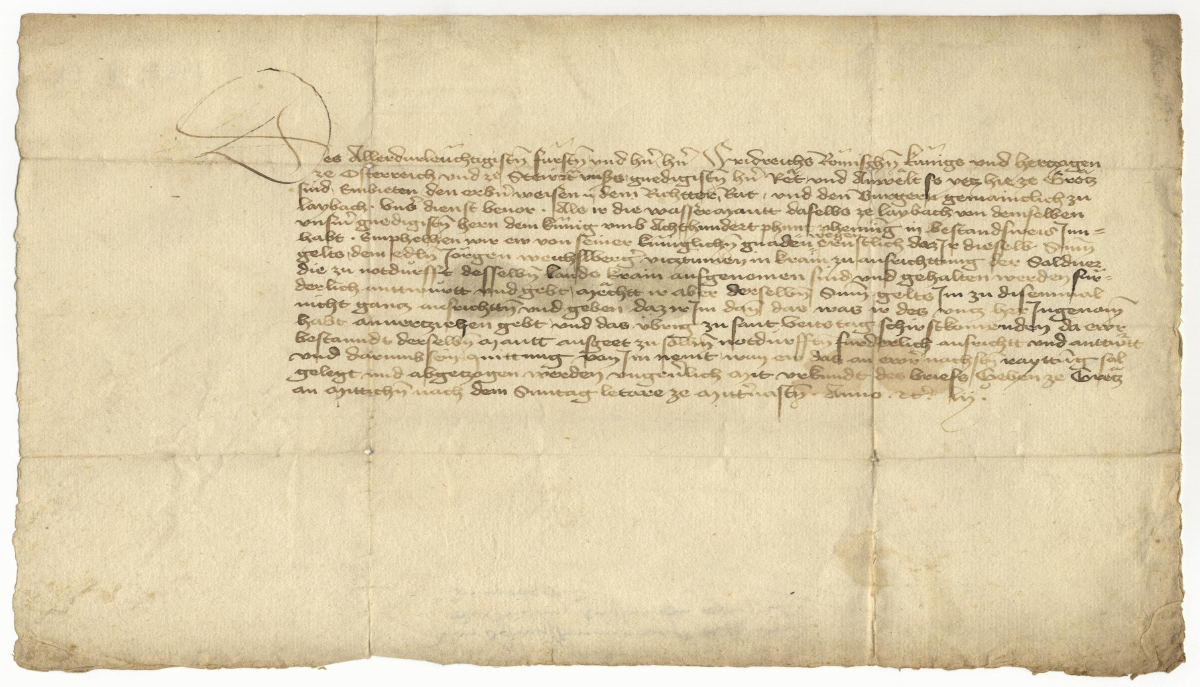 Des Allerdurleuchtigistn furstn und hn̄ hn̄ Fridreichs Römischn kunigs und hertzogen
ze Österreich und ze Steir etc unss gnedigistn hn̄ Rët und Anwëlt so yetz hie ze Grëtz
sind Embieten den erbn̄ weisen dem Richtter, Rat, und den Burgern gemainclich zu
laybach. Unsn̄ dienst bevor. Als ir die wassermautt daselbs ze laybach von demselben
unsm̄ gnedigistn hern dem kunig umb Achthundert phunt phening in bestandsweis Inn-
habt. Emphelhen wir ew von seiner kuniglichn gnaden wegen ernstlich daz Ir dieselb Sum
gelts dem edln Jörgen weichslberger vicztumen in krain zu ausrichttung der Soldner
die zu notdurfft desselbn lands krain aufgenomen sind und gehalten werden fur-
derlich anttwurtt und gebt, Mëchtt ir aber derselbn Sum gelts Im zu disemmal
nicht gancz ausrichttn und geben daz ir Im dan dar was ir des uncz her Ingenom
habt anvertziehen gebt und das ubrig zu sant Veits tag schiristkomenden da ewr
bestanndt derselbn mautt ausgeet zu solhn notdurfftn furderlich ausrichtt und anttwurtt
und darumb sein quittung von Im nemt wan ew das an ewr nachstn rayttung sol
gelegt und abgetzogen werden ungevërlich Mit urkundt des briefs, Geben ze Grëtz
an Mittichn nach dem Suntag letare ze Mittvastn. Anno. etc. lij.